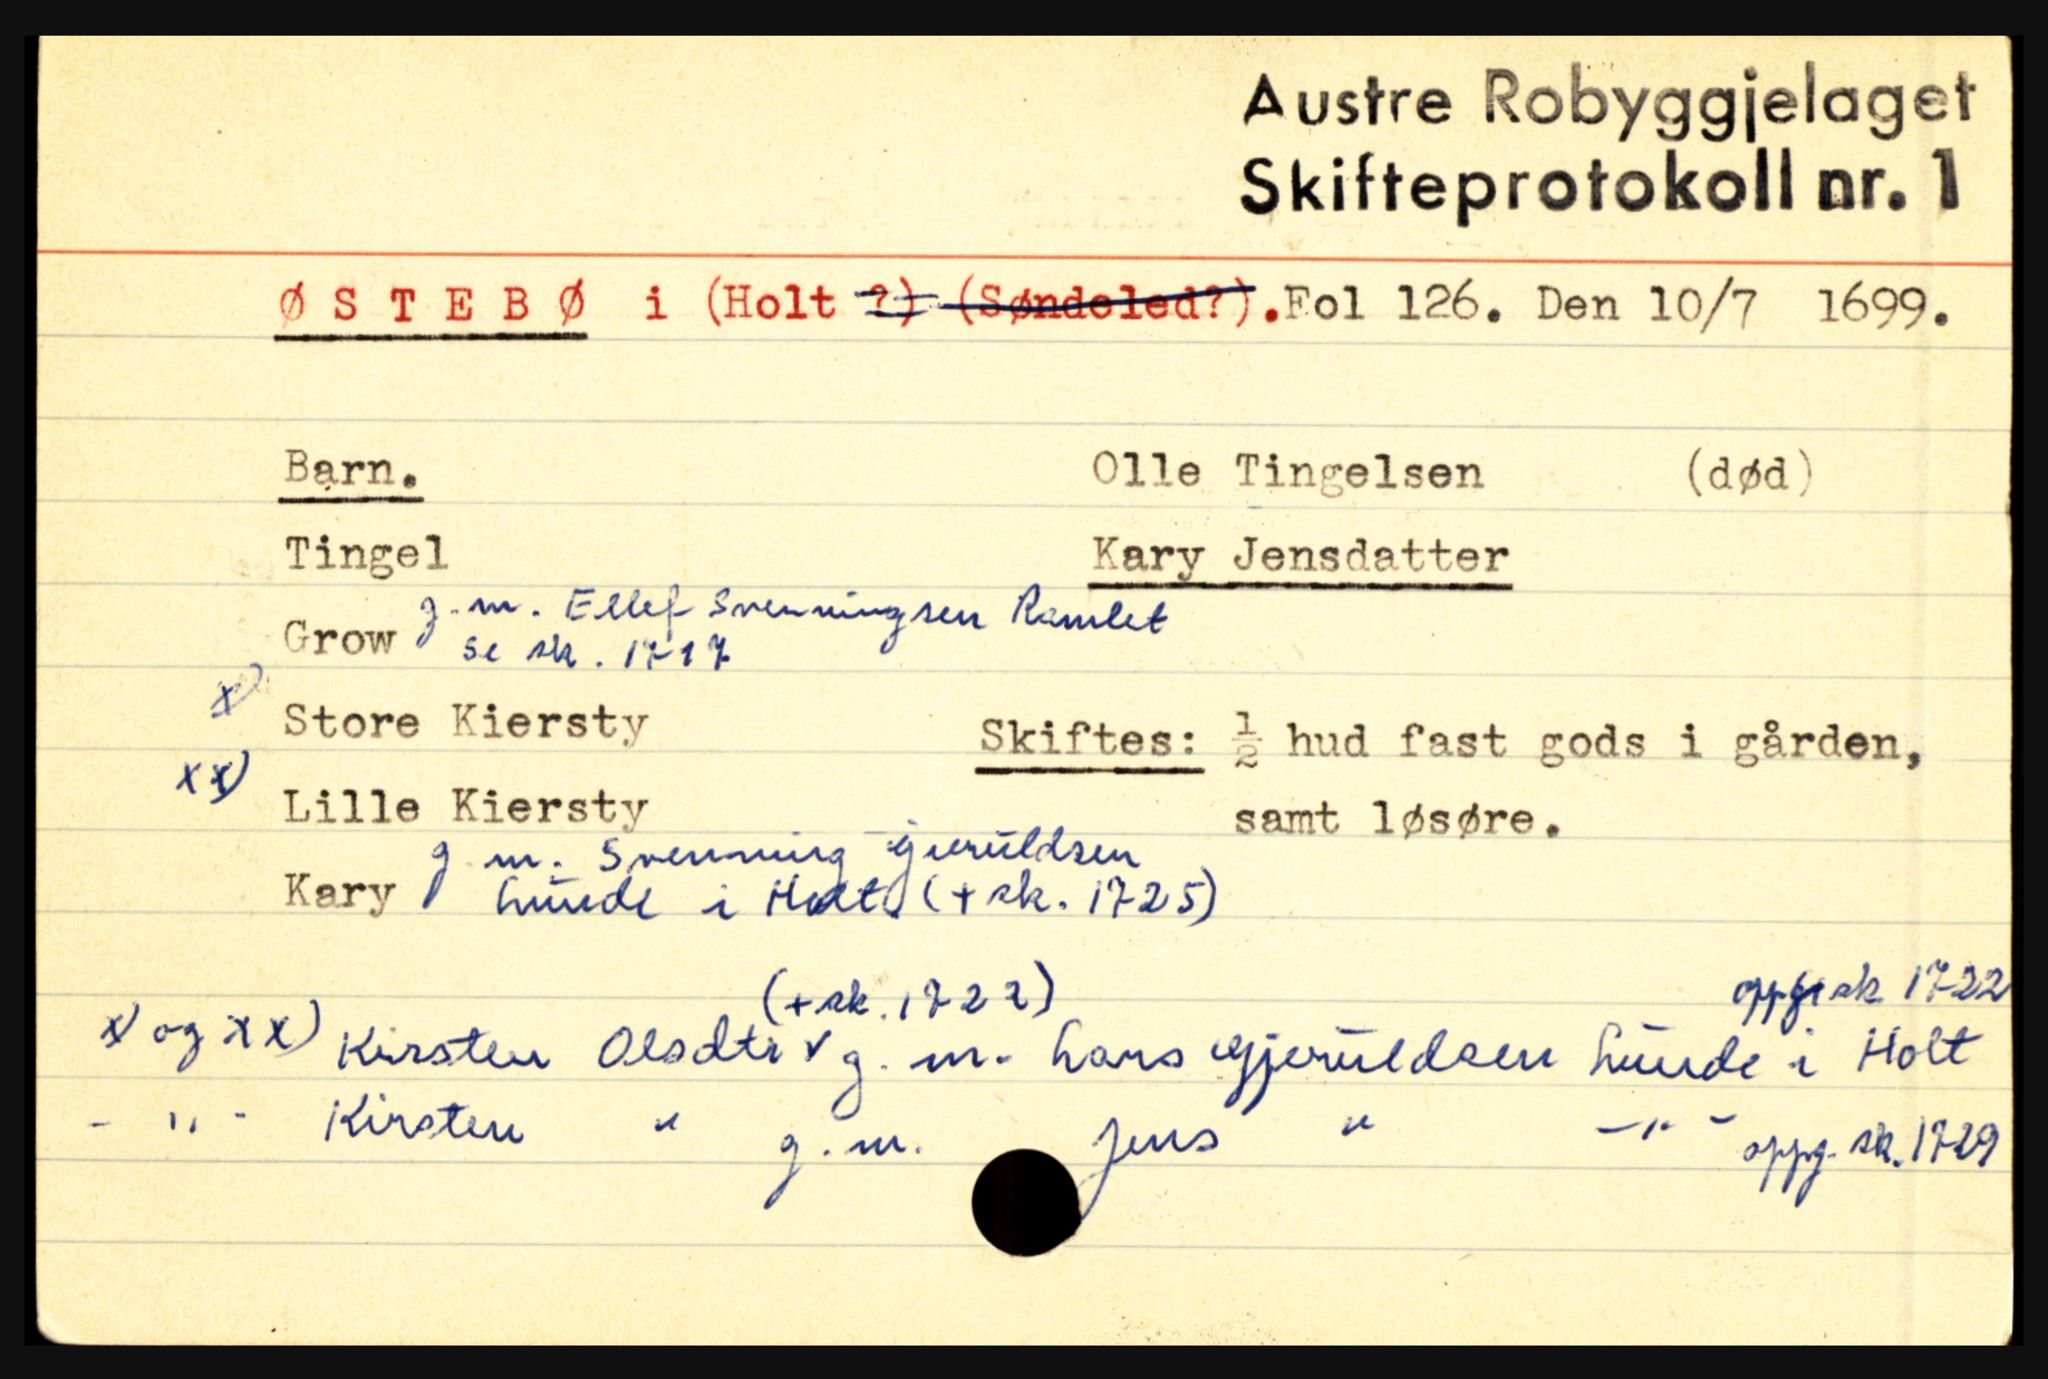 Austre Robyggjelaget
Skifteprotokoll nr. 1
Ø S T E B Ø i (Holt ?) (Søndeled?). Fol 126. Den 10/7 1699.
Barn. Olle Tingelsen (død)
Tingel Kary Jensdatter
Grow g.m. Ellef Svenningsen Ramlet
se sk. 1717
x) Store Kiersty Skiftes: ½ hud fast gods i gården,
xx) Lille Kiersty samt løsøre.
Kary g.m. Svenning Gjeruldsen
Lunde i Holt (+ sk. 1725)
(+ sk. 1722) oppg sk 1722
x) og xx) Kirsten Olsdtr g.m. Lars Gjeruldsen Lunde i Holt
- " - Kirsten " g.m. Jens " - " - oppg. sk. 1729